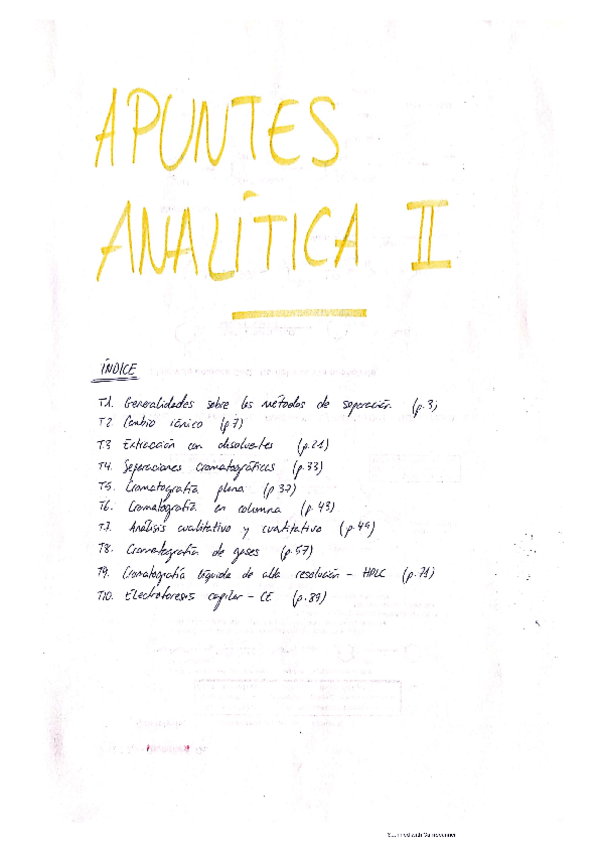 APUNTES
ANALÍTICA II
ÍNDICE
T.1. Generalidades sobre los métodos de separación (p.3)
T2. Cambio iónico (p.7)
T3. Extracción con disolventes (p.21)
T4. Separaciones cromatográficas (p.33)
T5. Cromatografía plana (p.37)
T6. Cromatografía en columna (p.43)
T.7. Análisis cualitativo y cuantitativo (p.49)
T8. Cromatografía de gases (p.57)
T9. Cromatografía líquida de alta resolución - HPLC (p.71)
T10. Electroforesis capilar - CE (p.89)
Scanned with CamScanner